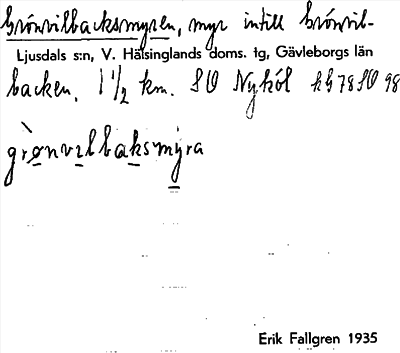 Grönvilbacksmyren, myr intill Grönvil-
Ljusdals s:n, V. Hälsinglands doms. tg, Gävleborgs län
backen, 1 1/2 km. SV Nykól kG 78 SV 98
grønvılbaksmýra
Erik Fallgren 1935